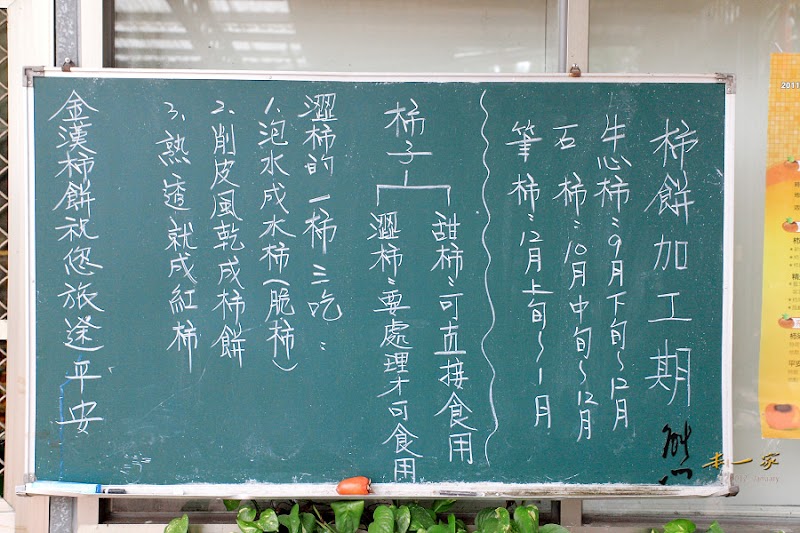 柿餅加工期
牛心柿:9月下旬~12月
石柿:10月中旬~12月
筆柿:12月上旬~1月
柿子
甜柿:可直接食用
澀柿:要處理才可食用
澀柿的一柿三吃:
1、泡水成水柿(脆柿)
2、削皮風乾成柿餅
3、熟透就成紅柿
金漢柿餅祝您旅途平安
熊
米一家
2011